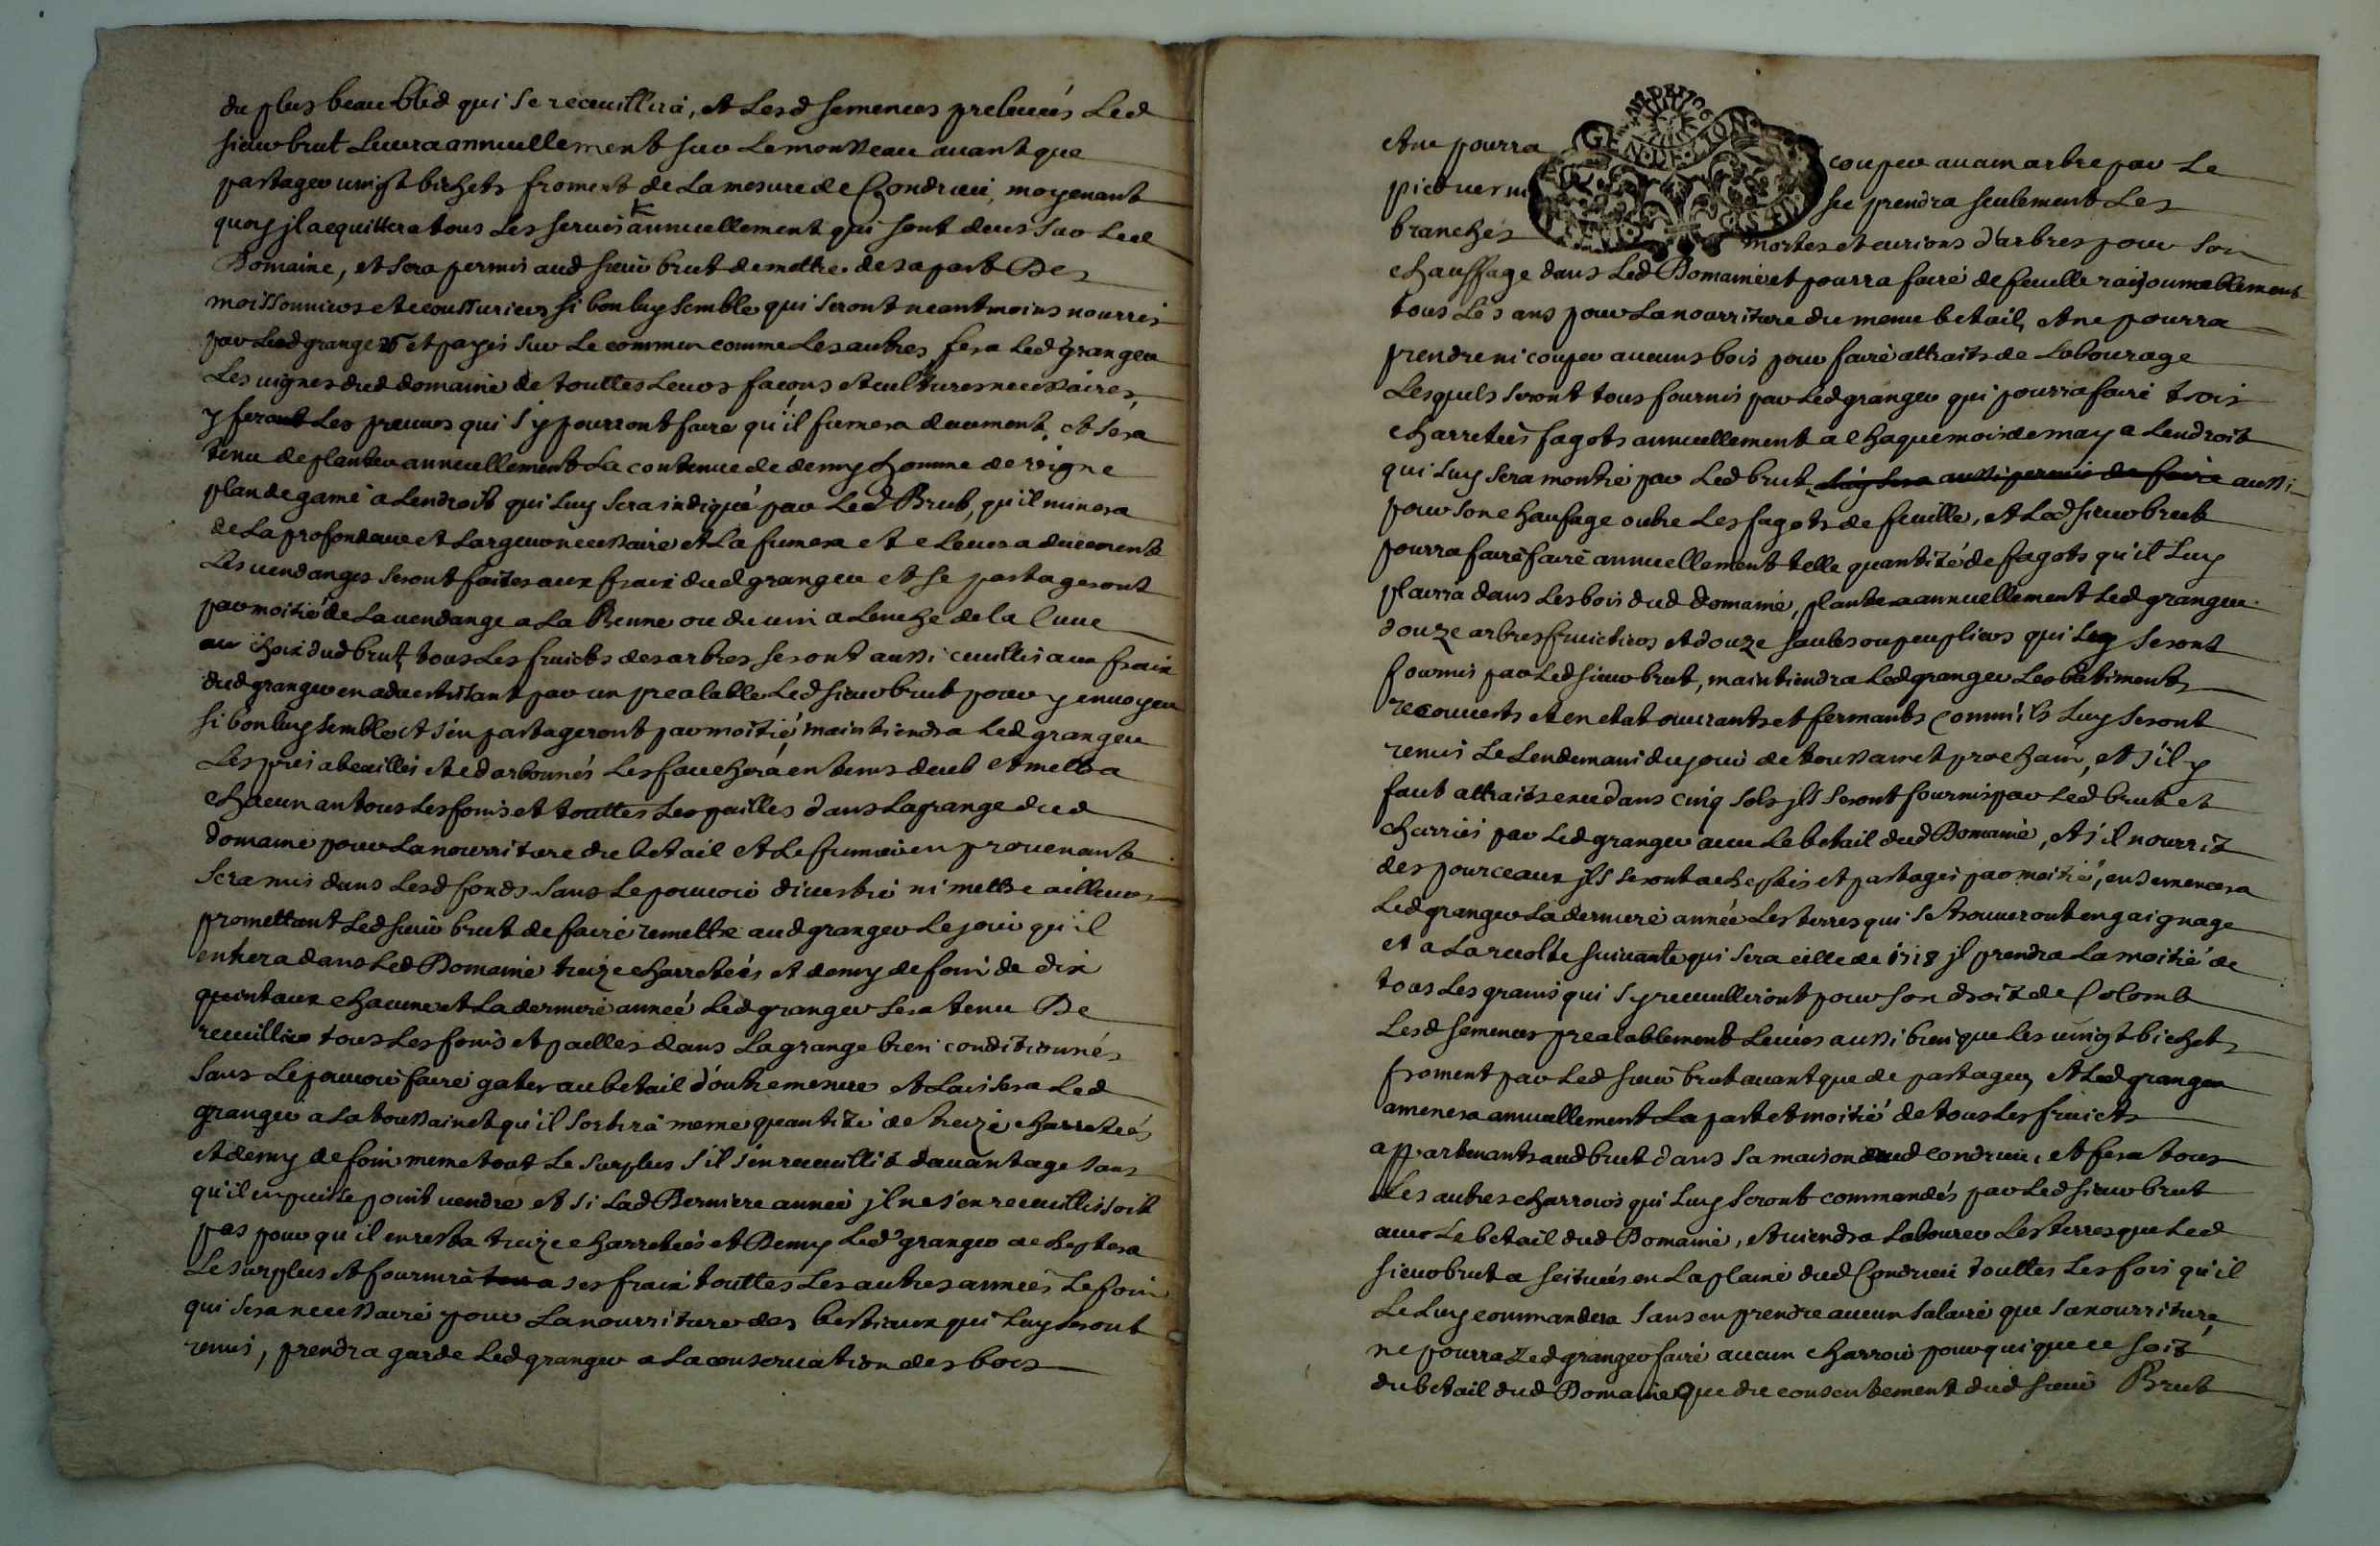 du plus beau bled qui se recueillira, et lesd semences prelevées led
sieur brut levera annuellement sur le monsseau avant que
partager vingt bichets froment de la mesure de Condrieu, moyenant
quoy jl acquittera tous les servis annuellement qui sont deus sur led
Domaine, et sera permis aud sieur brut de mettre de sa part Des
moissonniers et ecoussuriers si bon luy semble qui seront neantmoins nourris
par led granger et payés sur le commun comme les autres, fera led granger
les vignes dud domaine de touttes leurs façons et cultures necessaires,
y fera les preuves qui s'y pourront faire qu'il fumera duement, et sera
tenu de planter annuellement la contenue de demy homme de vigne
plan de gamé a lendroit qui luy sera indiqué par led Brut, qu'il minera
de la profondeur et largeur necessaire et la fumera et elevera duement
les vendanges seront faites aux fraix dud granger et se partageront
par moitié de la vendange a la Benne ou du vin a lanche de la cuve
au choix dud brut, tous les fruicts des arbres seront aussi cueillis aux fraix
dud granger en advertissant par un prealable led sieur brut pour y envoyer
si bon luy semble et s'en partageront par moitié, maintiendra led granger
les prés abeuillés et edarbounés les fauchera en tems deub et mettra
chacun an tous les foins et touttes les pailles dans la grange dud
domaine pour la nourriture du betail et le fumier en provenant
sera mis dans lesd fonds sans le pouvoir divertir ni mettre ailleurs
promettant led sieur brut de faire remettre aud granger le jour qu'il
entrera dans led Domaine treize charretées et demy de foin de dix
quintaux chacune et la derniere année led granger sera tenu De
recuillir tous les foins et pailles dans la grange bien conditionnés
sans le pouvoir faire gater au betail d'outre mesure et laissera led
granger a la toussainct qu'il sortira meme quantité de treize charretées
et demy de foin meme tout le surplus s'il s'en recuillit davantage sans
qu'il en puisse point vendre et si lad Derniere année jl ne s'en recueillissoit
pas pour qu'il en resta treize charretées et Demy led granger acheptera
le surplus et fournira a ses fraix touttes les autres années le foin
qui sera necessaire pour la nourriture des bestiaux qui luy seront
remis, prendra garde led granger a la conservation des bois
et ne pourra coupper aucun arbre par le
pied ni prendra seulement les
branches mortes et eurions d'arbres pour son
chauffage dans led Domaine et pourra faire de feuille raisonnablement
tous les ans pour la nourriture du menu betail, et ne pourra
prendre ni couper aucuns bois pour faire attraits de labourage
lesquels seront tous fournis par led granger qui pourra faire trois
charretées fagots annuellement a chaque mois de may a lendroit
qui luy sera montré par led brut luy sera aussi permis de faire aussi
pour son chaufage outre les fagots de feuille, et led sieur brut
pourra faire faire annuellement telle quantité de fagots qu'il luy
plairra dans les bois dud Domaine, plantera annuellement led granger
douze arbres fruictiers et douze saules ou peupliers qui luy seront
fournis par led sieur brut, maintiendra led granger les batiments
recouverts et en etat ouvrants et fermants comm'ils luy seront
remis le lendemain du jour de toussainct prochain, et s'il y
faut attraits excedans cinq sols jls seront fournis par led brut et
charriés par led granger avec le betail dud Domaine, et s'il nourrit
des pourceaux jls seront acheptés et partagés par moitié, ensemencera
led granger la derniere année les terres qui se trouveront en gaignage
et a la recolte suivante qui sera celle de 1718 jl prendra la moitié de
tous les grains qui s'y recuilliront pour son droit de Colomb
lesd semences prealablement levées aussi bien que les vingt bichets
froment par led sieur brut avant que de partager, et led granger
amenera annuellement la part et moitié de tous les fruicts
appartenants aud brut dans sa maison dud condrieu, et fera tous
les autres charrois qui luy seront commandés par led sieur brut
avec le betail dud Domaine, et viendra labourer les terres que led
sieur brut a scituées en la plaine dud Condrieu touttes les fois qu'il
le luy commandera sans en prendre aucun salaire que sa nourriture,
ne pourra led granger faire aucun charroi pour qui que ce soit
du betail dud Domaine que du consentement dud sieur Brut
GEN. DE. LION.